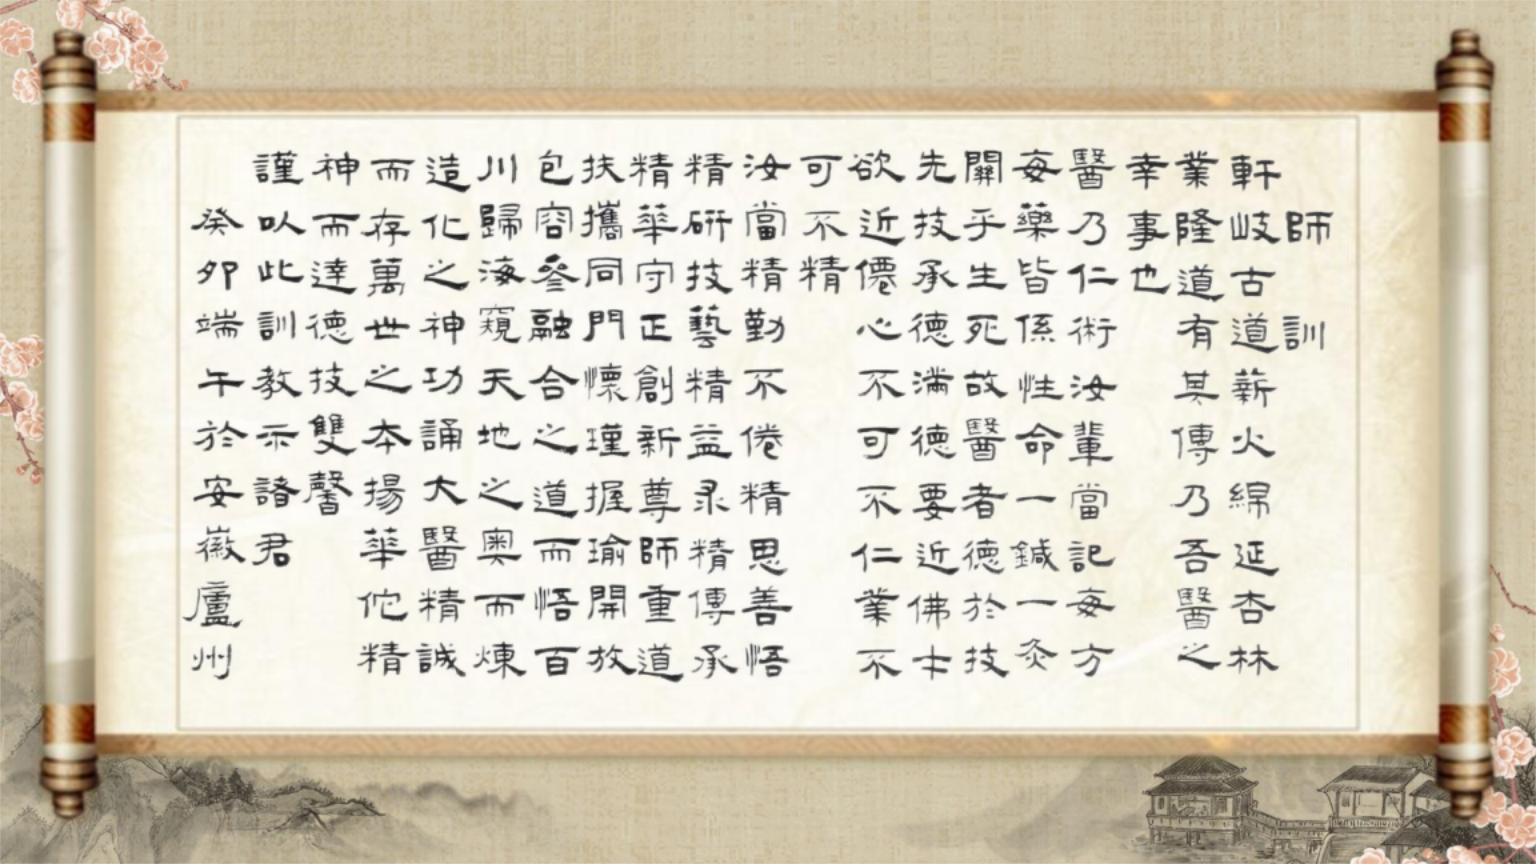 師訓
軒岐古道薪火綿延杏林
業隆道有其傳乃吾醫之
幸事也
醫乃仁術汝輩當記每方
每藥皆係性命一鍼一灸
關乎生死故醫者德於技
先技承德滿德要近佛才
欲近僊心不可不仁業不
可不精
汝當精勤不倦精思善悟
精研技藝精益求精傳承
精華守正創新尊師重道
扶攜同門懷瑾握瑜開放
包容參融合之道而悟百
川歸海窺天地之奧而煉
造化之神功誦大醫精誠
而存萬世之本揚華佗精
神而達德技雙馨
謹以此訓教示諸君
癸卯端午於安徽廬州